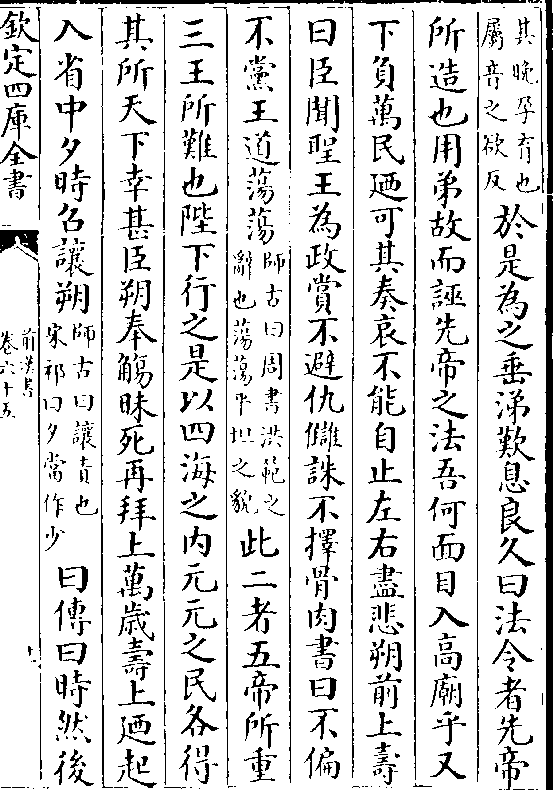 其晚孕育也
屬音之欲反
於是為之垂涕歎息良久曰法令者先帝
所造也用弟故而誣先帝之法吾何面目入高廟乎又
下負萬民廼可其奏哀不能自止左右盡悲朔前上壽
曰臣聞聖王為政賞不避仇讎誅不擇骨肉書曰不偏
不黨王道蕩蕩
師古曰周書洪範之
辭也蕩蕩平坦之貌
此二者五帝所重
三王所難也陛下行之是以四海之内元元之民各得
其所天下幸甚臣朔奉觴昧死再拜上萬歲壽上廼起
入省中夕時召讓朔
師古曰讓責也
宋祁曰夕當作少
曰傳曰時然後
欽定四庫全書
前漢書
卷六十五